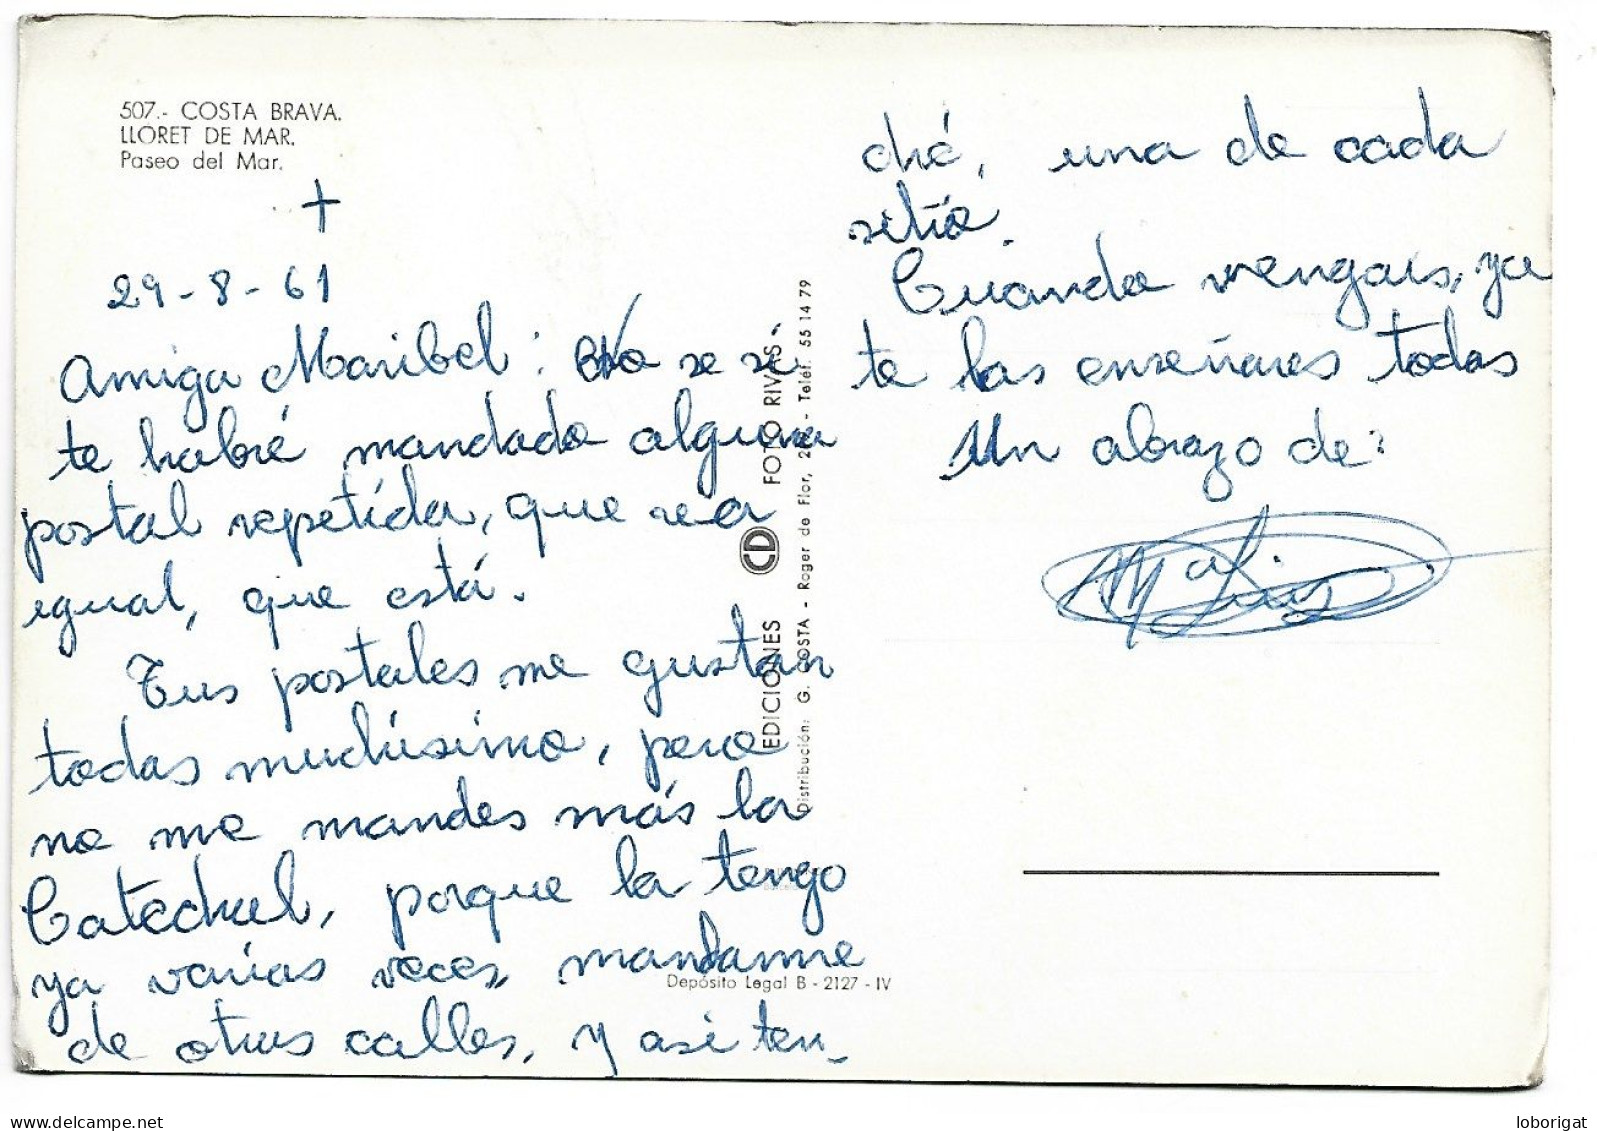 507.- COSTA BRAVA.
LLORET DE MAR.
Paseo del Mar.
+
29-8-61
Amiga Maribel: No se si
te habré mandado alguna
postal repetida, que sea
igual, que está.
Tus postales me gustan
todas muchísimo, pero
no me mandes más la
Catedral, porque la tengo
ya varias veces, mandame
de otras calles, y asi ten-
dré, una de cada
sitio.
Cuando vengais, ya
te las enseñares todas
Un abrazo de:
Mª Luis
EDICIONES CD FOTO RIVAS
Distribución: G. COSTA - Roger de Flor, 2 - Teléf. 55 14 79
Depósito Legal B - 2127 - IV
loborigat